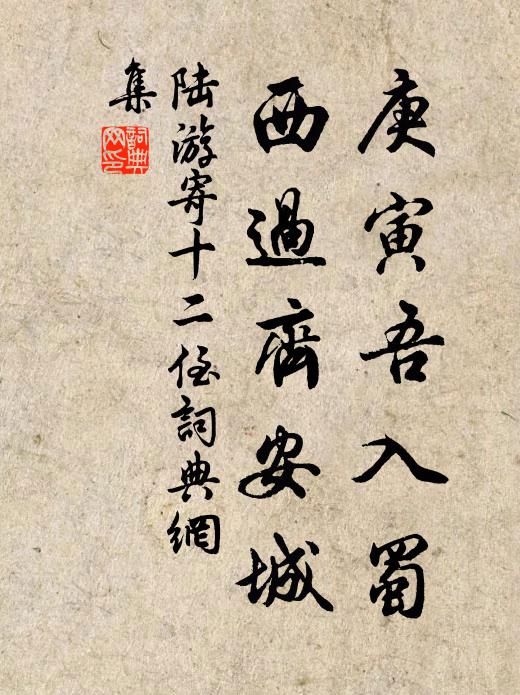 庚寅吾入蜀
西過齊安城
陸游寄十二侄詞典網
集
詞典
网印